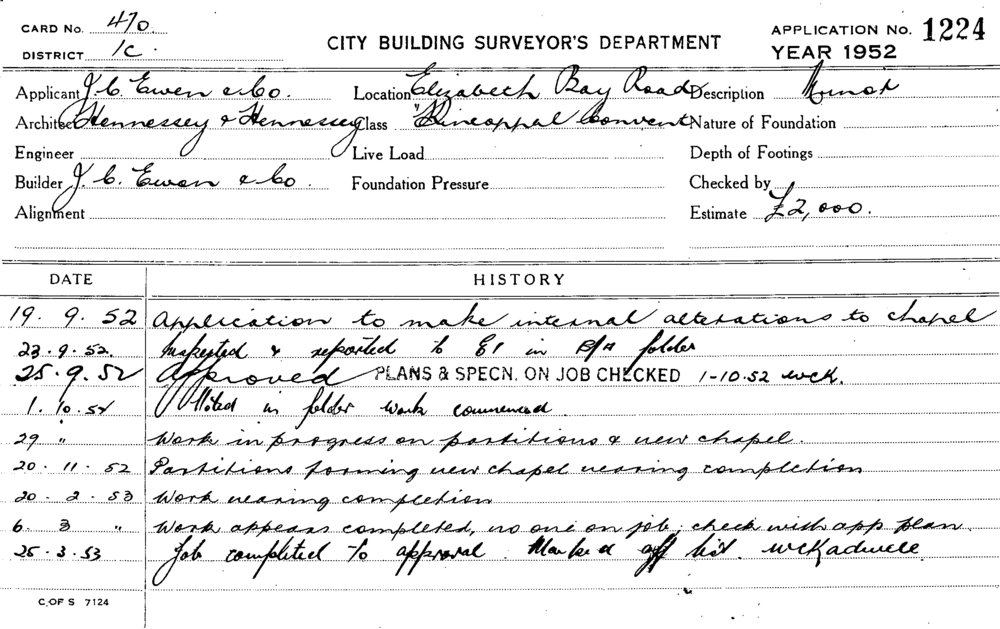 CARD No. 470. CITY BUILDING SURVEYOR'S DEPARTMENT APPLICATION No. 1224
DISTRICT 1C. YEAR 1952
Applicant J. C. Ewen & Co. Location Elizabeth Bay Road Description
Architect Hennessey & Hennessey Class Convent Nature of Foundation
Engineer Live Load Depth of Footings
Builder J. C. Ewen & Co. Foundation Pressure Checked by
Alignment Estimate £2,000.
DATE HISTORY
19. 9. 52 Application to make internal alterations to chapel
23. 9. 52. Inspected & reported to in folder
25. 9. 52 Approved PLANS & SPECN. ON JOB CHECKED 1-10.52 WCK.
1. 10. 52 Noted in folder work commenced.
29 " Work in progress on partitions & new chapel.
20. 11. 52 Partitions forming new chapel nearing completion
20. 2. 53 Work nearing completion
6. 3 " Work appears completed, no one on job, check with app plan.
25. 3. 53 Job completed to approval Marked off list.
C. OF S 7124